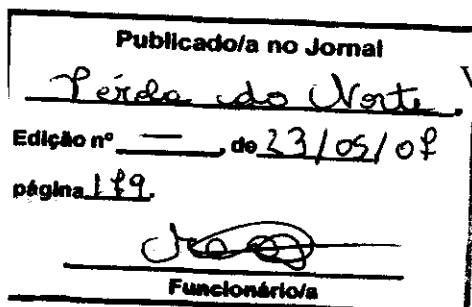 Publicado/a no Jornal
Pérola do Norte
Edição nº — de 23/05/08
página 179.
Funcionário/a